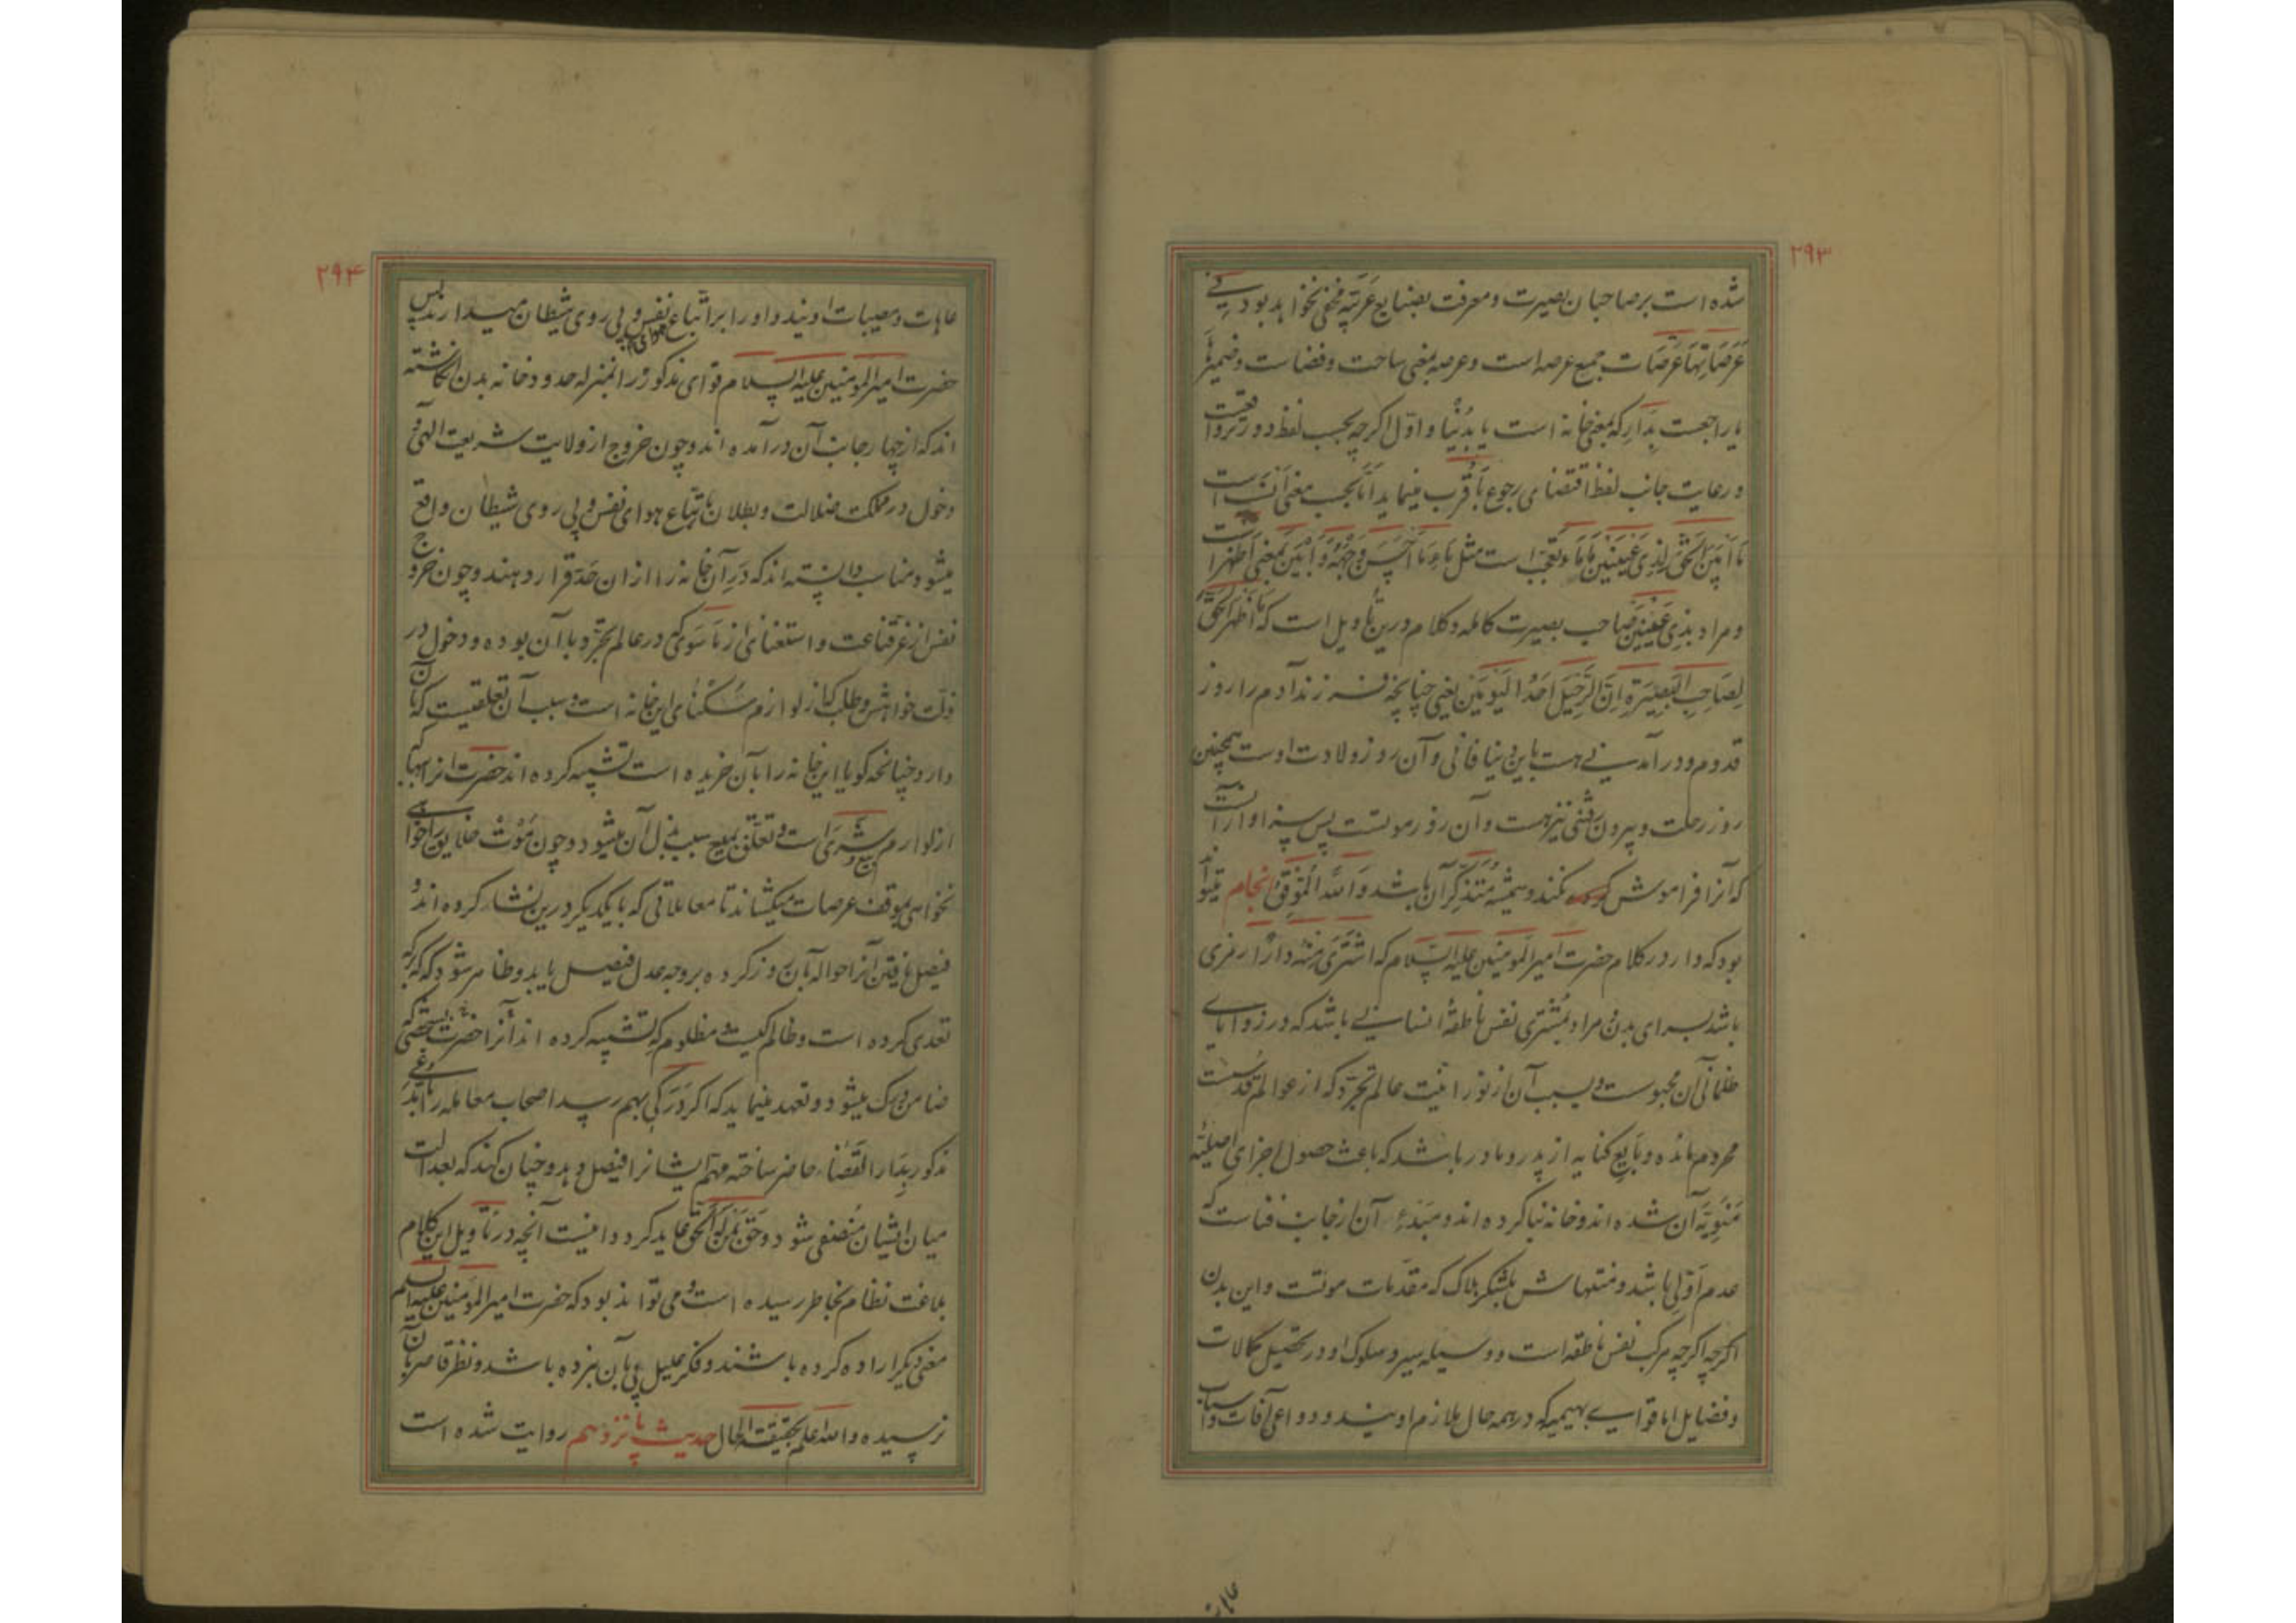 ۲۹۳
شده است بر صاحبان بصیرت و معرفت بضایع عربیّه مخفی نخواهد بود فی
عَرَصَاتِهَا عَرَصَات جمع عرصه است و عرصه بمعنی ساحت و فضاست و ضمیر ها
یا راجعست بِدَار که بمعنی خانه است یا بِدُنْیا و اوّل اگرچه بحسب لفظ دورتر واقعست
و رعایت جانب لفظ اقتضای رجوع باَقرب مینماید امّا بحسب معنی اَنسَب است
مَا اَبْیَنَ الْحَقَّ لِذِی عَیْنَیْنِ مَا مَاء تعجّب است مثل مَاءِ مَا اَحْسَنَ وَجْهَهُ وَ اَبْیَنَ بمعنی اَظْهَر است
و مراد بذی عَیْنَیْن صاحب بصیرت کامله و کلام درین تأویل است که مَا اَظْهَرَ الحَقَّ
لِصَاحِبِ الْبَصِیْرَةِ اِنَّ الرَّحِیْلَ اَحَدُ الْیَوْمَیْنِ یعنی چنانچه فرزند آدم را روز
قدوم و در آمدنی هست باین دنیا فانی و آن روز ولادت اوست همچنین
روز رحلت و بیرون رفتنی نیز هست و آن روز موتست پس سزاوار آنست
که آنرا فراموش نکند و همیشه مُتَذَکِّر آن باشد وَاللّٰهُ الْمُوَفِّق انجام میتواند
بود که دار در کلام حضرت امیر المومنین علیه السّلام که اشْتَرَی مِنْهُ دَارًا رمزی
باشد برای بدن و مراد بمُشتری نفس ناطقهٔ انسانی باشد که در زوایای
ظلمانی آن محبوست و بسبب آن از نورانیت عالم تجرّد که از عوالم قدسست
محروم مانده و بَایع کنایه از پدر و مادر باشد که باعث حصول اجزای اصلیّهٔ
مَنَوِیّهٔ آن شده اند و خانه بنا کرده اند و مَبدَء آن از جانب فناست که
عدم اوّلی باشد و منتهاش بلشکر هلاک که مقدّمات موتست و این بدن
اگرچه اگرچه مرکب نفس ناطقه است و وسیله سیر و سلوک او در تحصیل کمالات
و فضایل اما قوای بهیمیه که در همه حال ملازم اویند و دواعی آفات و اسباب
عاهات
۲۹۴
عاهات و مصیبات اویند و او را بر اتباع هوای نفس و پی روی شیطان میدارند پس
حضرت امیر المومنین علیه السلام قوای مذکور را بمنزله حدود خانه بدن انگاشته
اند که از چهار جانب آن در آمده اند و چون خروج از ولایت شریعت الهی و
دخول در مملکت ضلالت و بطلان باتباع هوای نفس و پی روی شیطان واقع
میشود مناسب دانسته اند که دَرِ آن خانه را از ان حَدّ قرار دهند و چون خروج
نفس از عزّ قناعت و استغنای از مَا سَوَی که در عالم تجرّد با آن بوده و دخول در
ذلّت خواهش و طلب که از لوازم سُکنای این خانه است و سبب آن تعلقیست که بآن
دارد چنانچه گویا این خانه را بآن خریده است تشبیه کرده اند حضرت انرا ببها که
از لوازم بیع و شِرَی است و تعلّق بمبیع سبب بذل آن میشود و چون مَوْت خلایق را خواهی
نخواهی بموقف عرصات میکشاند تا معاملاتی که با یکدیگر درین نشاء کرده اند و
فیصل نیافتن آنرا حواله بآن روز کرده بر وجه عدل فیصل یابد و ظاهر شود که که بر که
تعدی کرده است و ظالم کیست و مظلوم که تشبیه کرده اند آنرا حضرت بشخصی که
ضامن درک میشود و تعهد مینماید که اگر دَرَکی بهم رسد اصحاب معامله را بنوعی
مذکور بِدَار القَضَاء حاضر ساخته مهمّ ایشانرا فیصل دهد و چنان کند که بعدالت
میان ایشان مُنقضی شود و حَقّ بِمَنْ لَهُ الْحَقُّ عاید گردد اینست آنچه در تأویل این کلام
بلاغت نظام بخاطر رسیده است و می تواند بود که حضرت امیر المومنین علیه السلم
معنی دیگر اراده کرده باشند و فکر علیل پی بآن نبرده باشد و نظر قاصر بآن
نرسیده و الله اعلم بحقیقة الحال حدیث پانزدهم روایت شده است